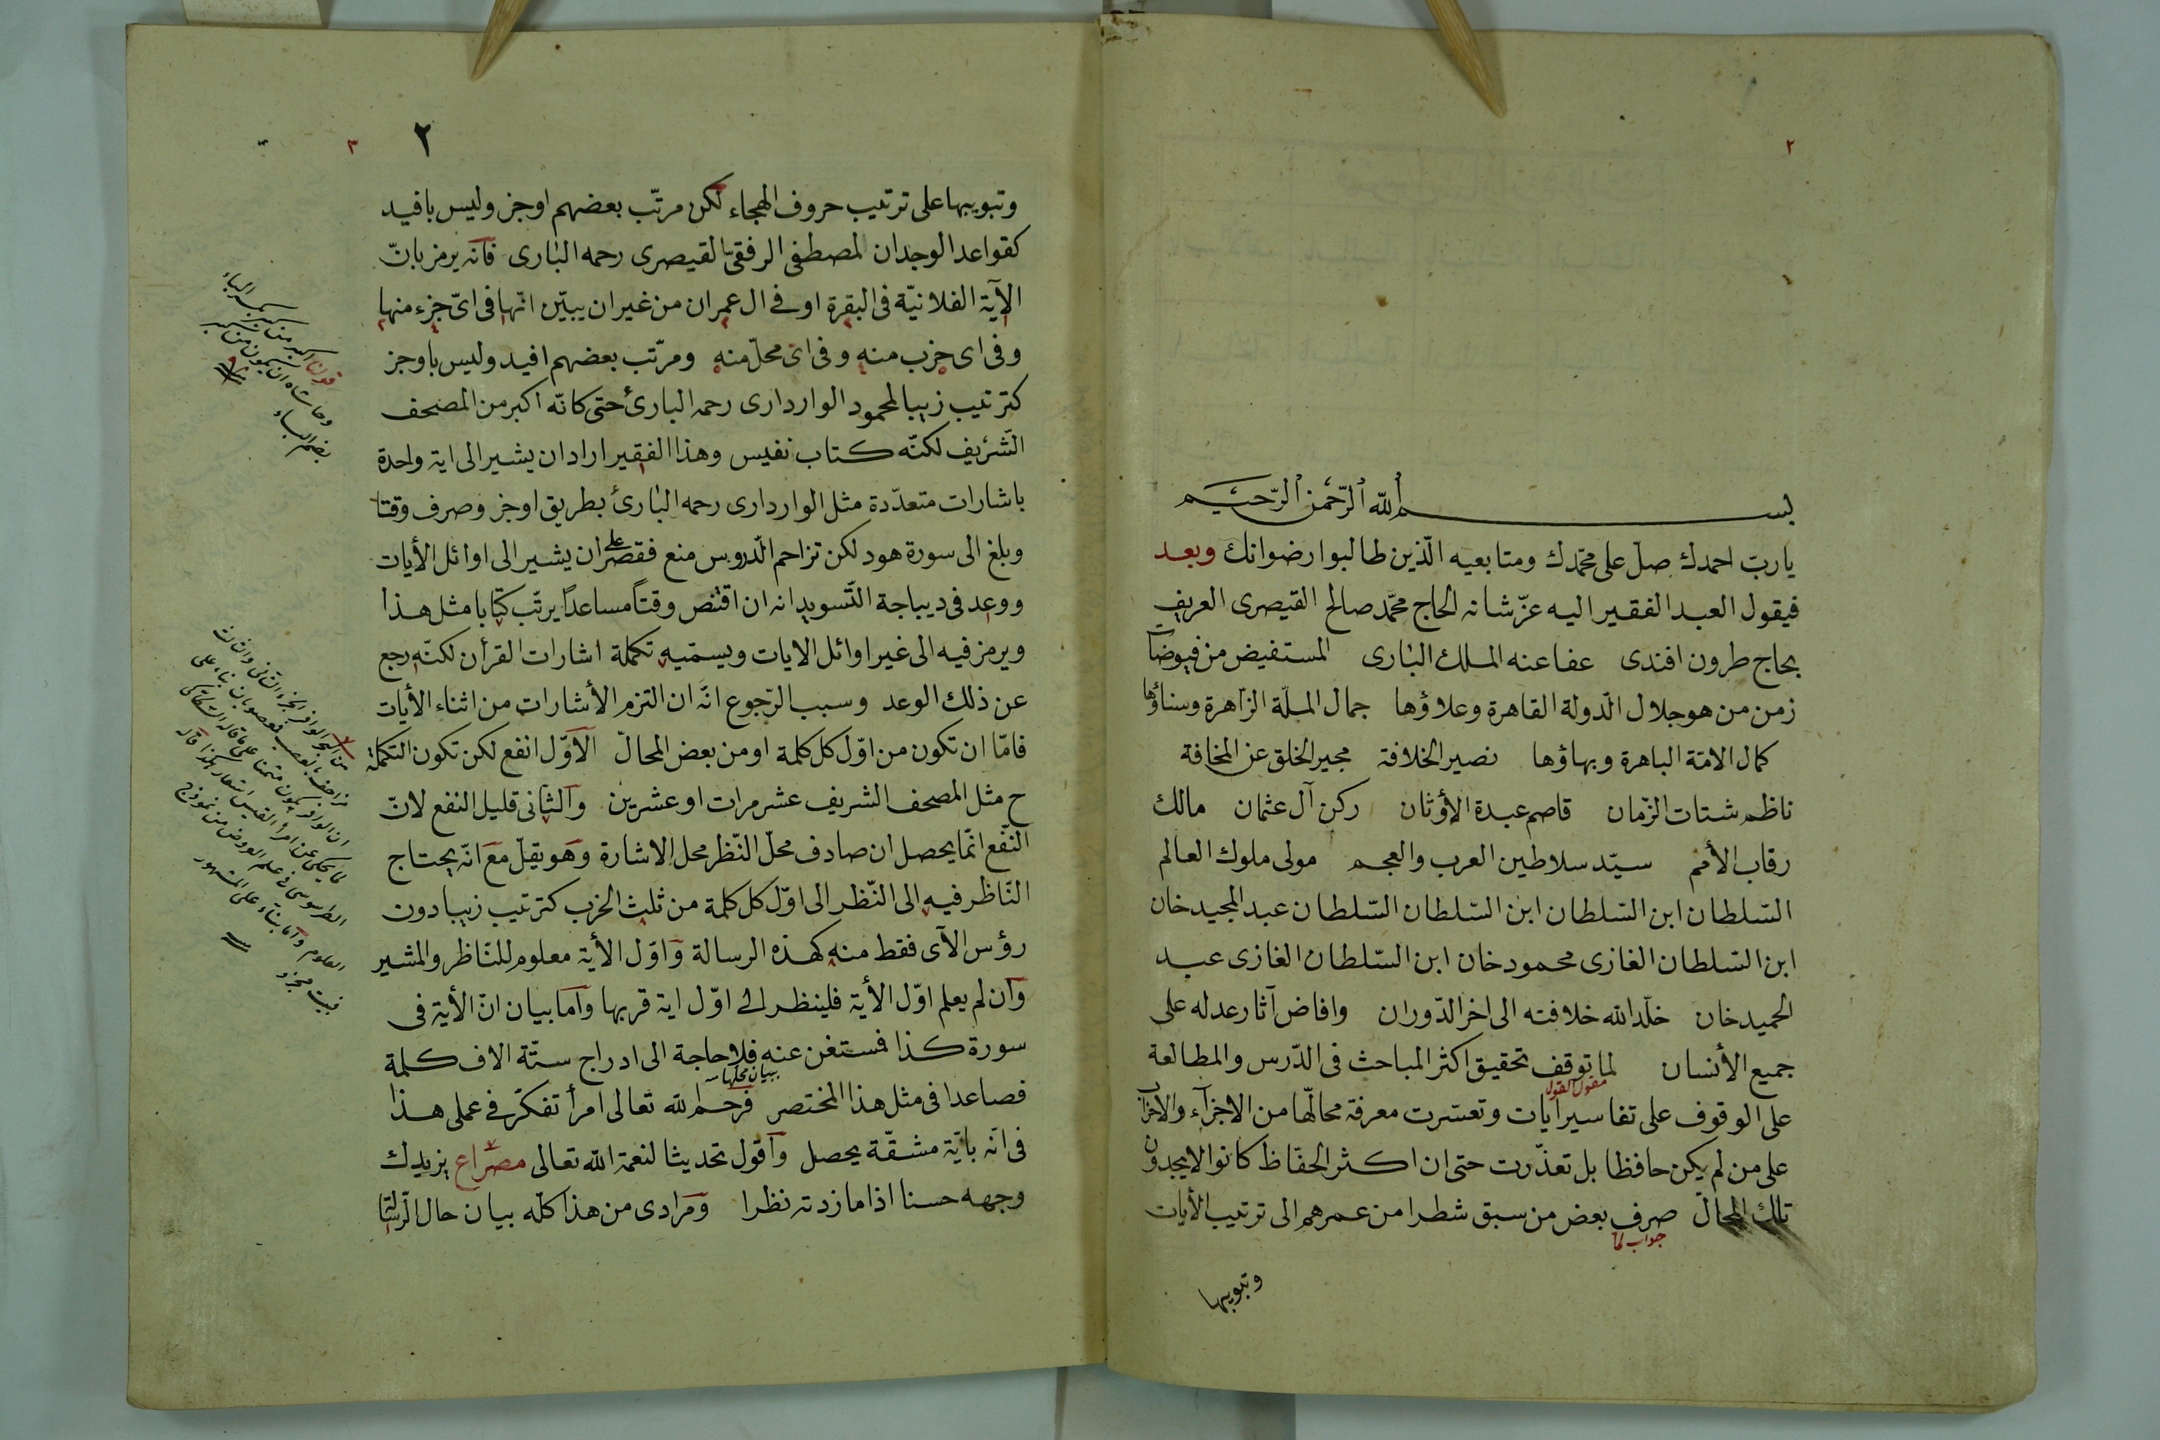 ٢
بسم الله الرّحمن الرّحيم
يا ربّ احمدك صلّ على محمّدك ومتابعيه الّذين طالبوا رضوانك وبعد
فيقول العبد الفقير اليه عزّ شانه الحاج محمّد صالح القيصرى العريف
بحاج طرون افندى عفا عنه الملك البارى المستفيض من فيوضات
زمن من هو جلال الدّولة القاهرة وعلاؤها جمال الملّة الزاهرة وسناؤها
كمال الامّة الباهرة وبهاؤها نصير الخلافة مجير الخلق عن المخافة
ناظم شتات الزّمان قاصم عبدة الأوثان ركن آل عثمان مالك
رقاب الأمم سيّد سلاطين العرب والعجم مولى ملوك العالم
السّلطان ابن السّلطان ابن السّلطان السّلطان عبد المجيد خان
ابن السّلطان الغازى محمود خان ابن السّلطان الغازى عبد
الحميد خان خلّد الله خلافته الى اخر الدّوران وافاض آثار عدله على
جميع الأنسان لما توقف تحقيق اكثر المباحث فى الدّرس والمطالعة
مقول القول
على الوقوف على تفاسير آيات وتعسّرت معرفة محالّها من الاجزآء والاحزاب
على من لم يكن حافظا بل تعذّرت حتى ان اكثر الحفّاظ كانوا لا يجدون
تلك المحالّ صرف بعض من سبق شطرا من عمرهم الى ترتيب الأيات
جواب لما
وتبويبها
٣ ٢
وتبويبها على ترتيب حروف الهجاء لكن مرتّب بعضهم اوجز وليس بافيد
كقواعد الوجدان لمصطفى الرفقىّ القيصرى رحمه البارى فانّه يرمز بانّ
الآية الفلانيّة فى البقرة او فى ال عمران من غير ان يبيّن انّها فى اىّ جزء منها
وفى اى حزب منه وفى اى محلّ منه ومرتّب بعضهم افيد وليس باوجز
كترتيب زيبا لمحمود الواردارى رحمه البارئ حتى كانّه اكبر من المصحف
الشّريف لكنّه كتاب نفيس وهذا الفقير اراد ان يشير الى اية واحدة
باشارات متعدّدة مثل الواردارى رحمه البارئ بطريق اوجز وصرف وقتا
وبلغ الى سورة هود لكن تزاحم الدّروس منع فقصر على ان يشير الى اوائل الأيات
ووعد فى ديباجة التّسويد انه ان اقتنص وقتاً مساعداً يرتّب كتابا مثل هذا
ويرمز فيه الى غير اوائل الايات ويسمّيه تكملة اشارات القرأن لكنّه رجع
عن ذلك الوعد وسبب الرّجوع انّه ان التزم الأشارات من اثناء الأيات
فامّا ان تكون من اوّل كل كلمة او من بعض المحالّ الاوّل انفع لكن تكون التكملة
ح مثل المصحف الشريف عشر مرات او عشرين والثانى قليل النفع لانّ
النّفع انّما يحصل ان صادف محلّ النّظر محل الاشارة وهو يقلّ مع انّه يحتاج
النّاظر فيه الى النّظر الى اوّل كل كلمة من ثلث الحزب كترتيب زيبا دون
رؤس الآى فقط منه كهذه الرسالة واوّل الأية معلوم للنّاظر والمشير
وان لم يعلم اوّل الأية فلينظر الى اوّل اية قربها واما بيان انّ الأية فى
سورة كذا فستغن عنه فلا حاجة الى ادراج ستّة الاف كلمة
ببيان محلها
فصاعدا فى مثل هذا المختصر فرحم الله تعالى امرأ تفكّر فى عملى هذا
فى انّه بايّة مشقّة يحصل واقول تحديثا لنعمة الله تعالى مصراع يزيدك
وجهه حسنا اذا ما زدته نظرا ومرادى من هذا كلّه بيان حال الرّسالة
قولنا اكبر من كبر بكسر الباء
وحاشاه ان يكون من كبر
بضمّ الباء